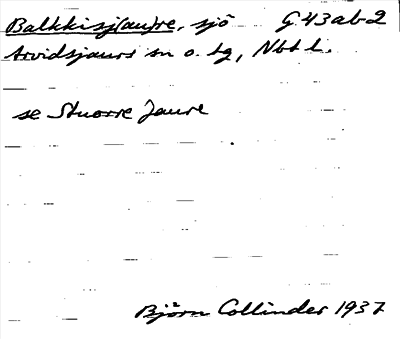 Balkkisj(au)re, sjö G 43 ab 2
Arvidsjaurs sn o. tg, Nbtl.
se Stuorre Jaure
Björn Collinder 1937